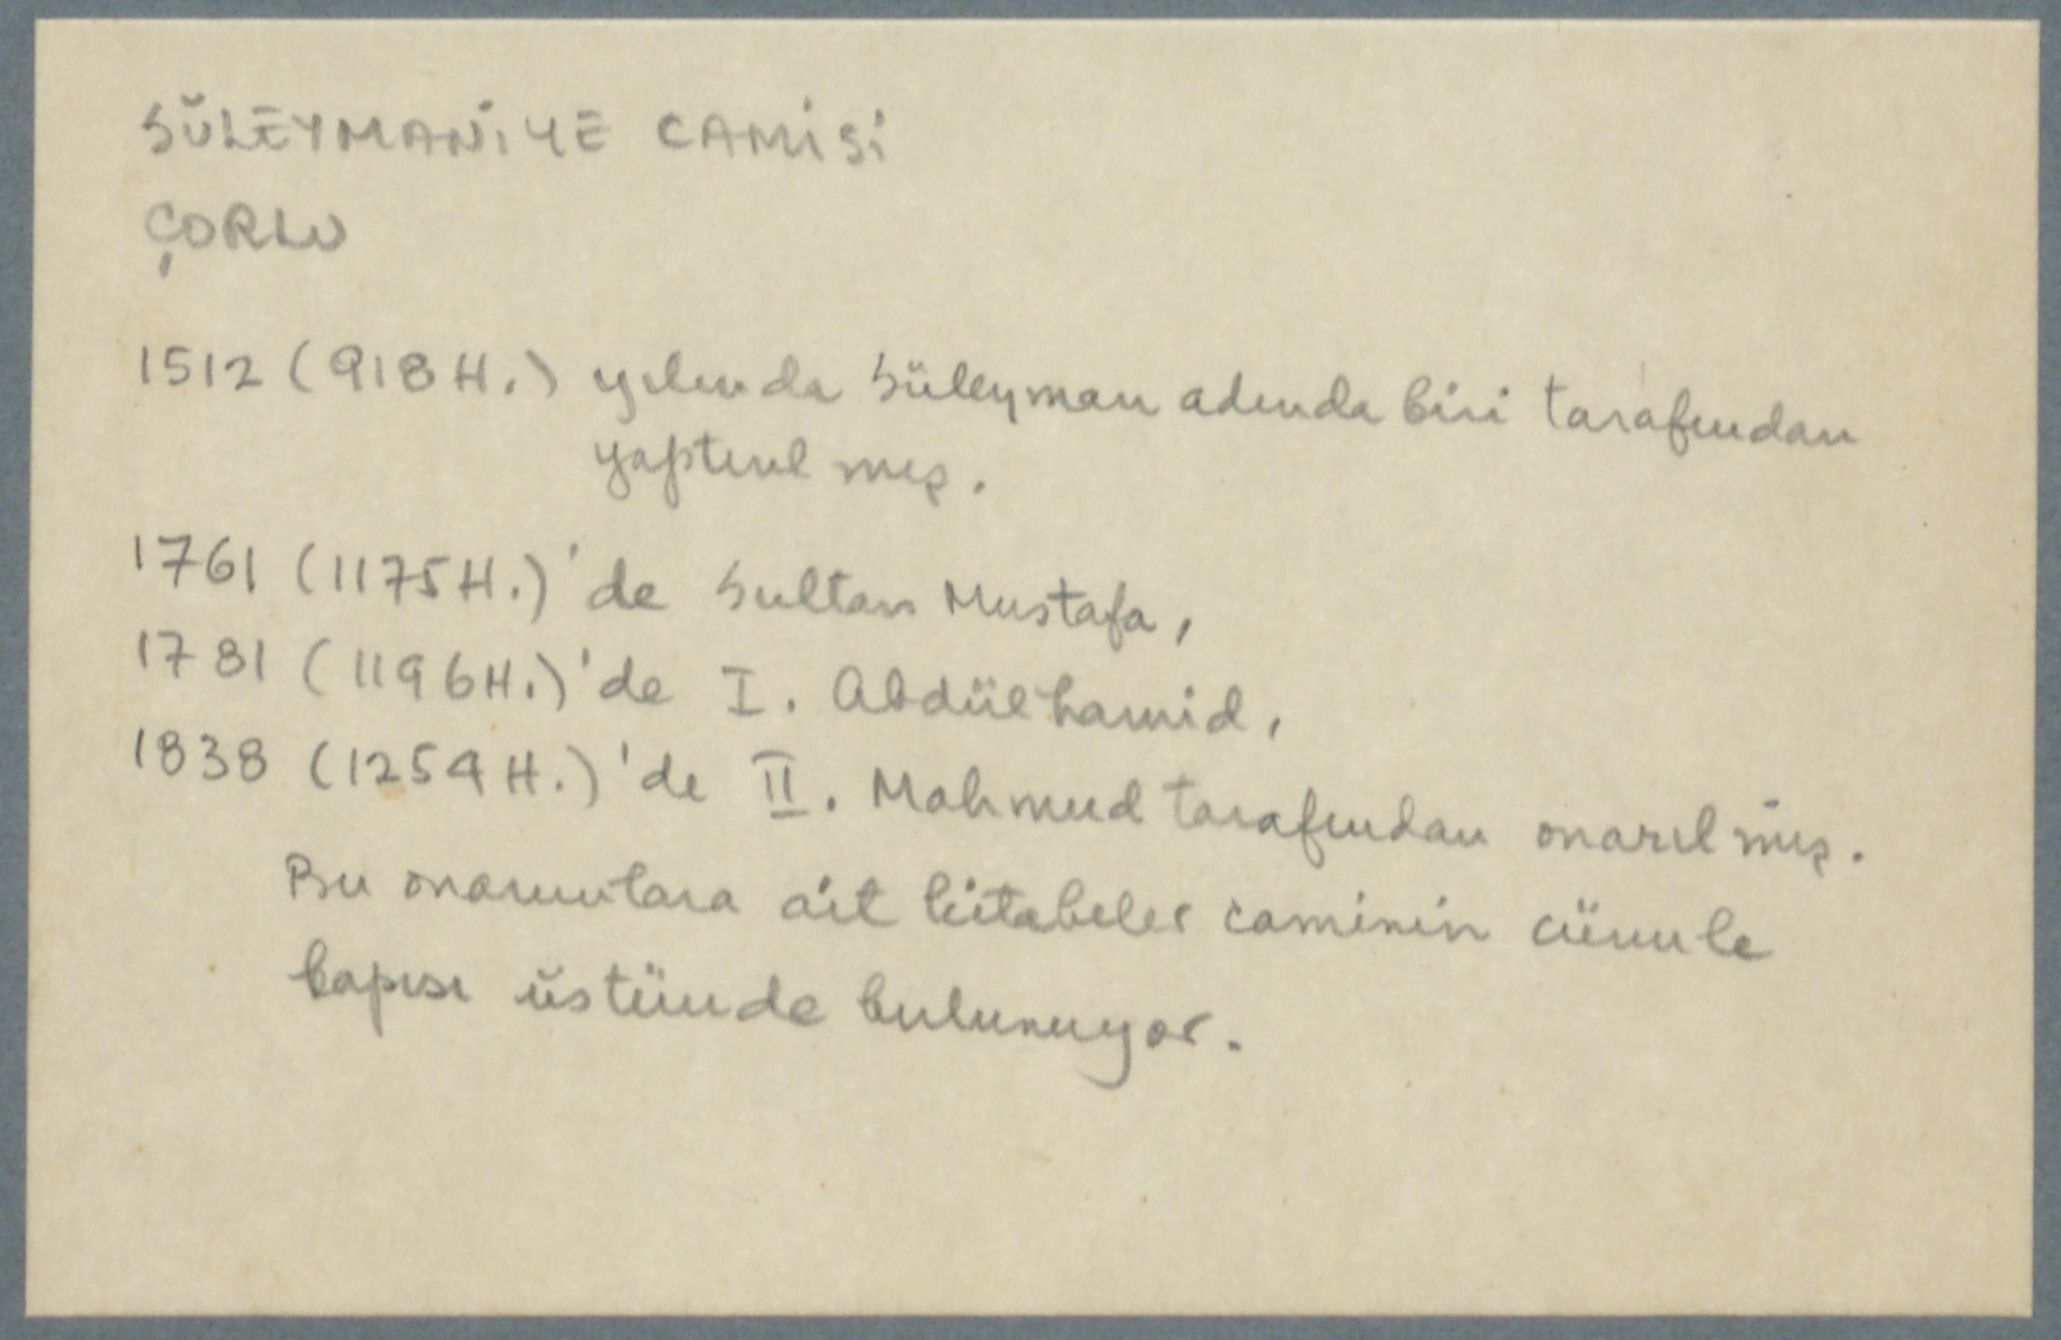 SÜLEYMANİYE CAMİSİ
ÇORLU
1512 (918 H.) yılında Süleyman adında biri tarafından
yaptırılmış.
1761 (1175 H.)'de Sultan Mustafa,
1781 (1196 H.)'de I. Abdülhamid,
1838 (1254 H.)'de II. Mahmud tarafından onarılmış.
Bu onarımlara ait kitabeler caminin cümle
kapısı üstünde bulunuyor.